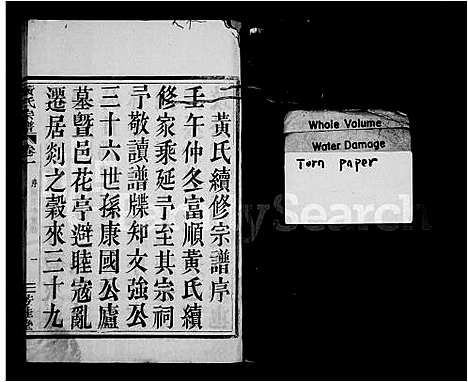 黃氏續修宗譜序
壬午仲冬富順黃氏續
修家乘延予至其宗祠
予敬讀譜牒知文強公
三十六世孫康國公廬
墓暨邑花亭避睦寇亂
遷居剡之穀來三十九
黃氏宗譜
卷一
序
一
Whole Volume
Water Damage
Torn paper